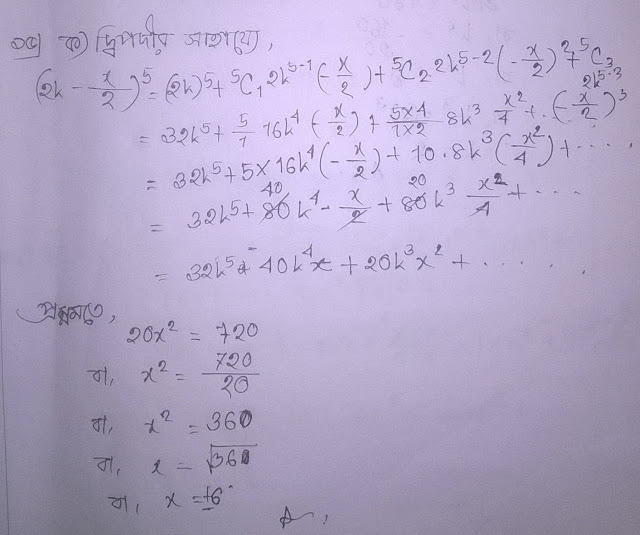 ০৫। ক) দ্বিপদীর সাহায্যে,
(2k - x/2)^5 = (2k)^5 + ^5C_1 2k^{5-1} (-x/2) + ^5C_2 2k^{5-2} (-x/2)^2 + ^5C_3 2k^{5-3} (-x/2)^3
= 32k^5 + 5/1 16k^4 (-x/2) + 5×4/1×2 8k^3 x^2/4 + ..
= 32k^5 + 5×16k^4 (-x/2) + 10.8k^3 (x^2/4) + ....
= 32k^5 + 80 40 k^4 - x/2 + 80 20 k^3 x^2/4 + ...
= 32k^5 - 40k^4x + 20k^3x^2 + ......
প্রশ্নমতে,
20x^2 = 720
বা, x^2 = 720/20
বা, x^2 = 360
বা, x = √360
বা, x = ±6